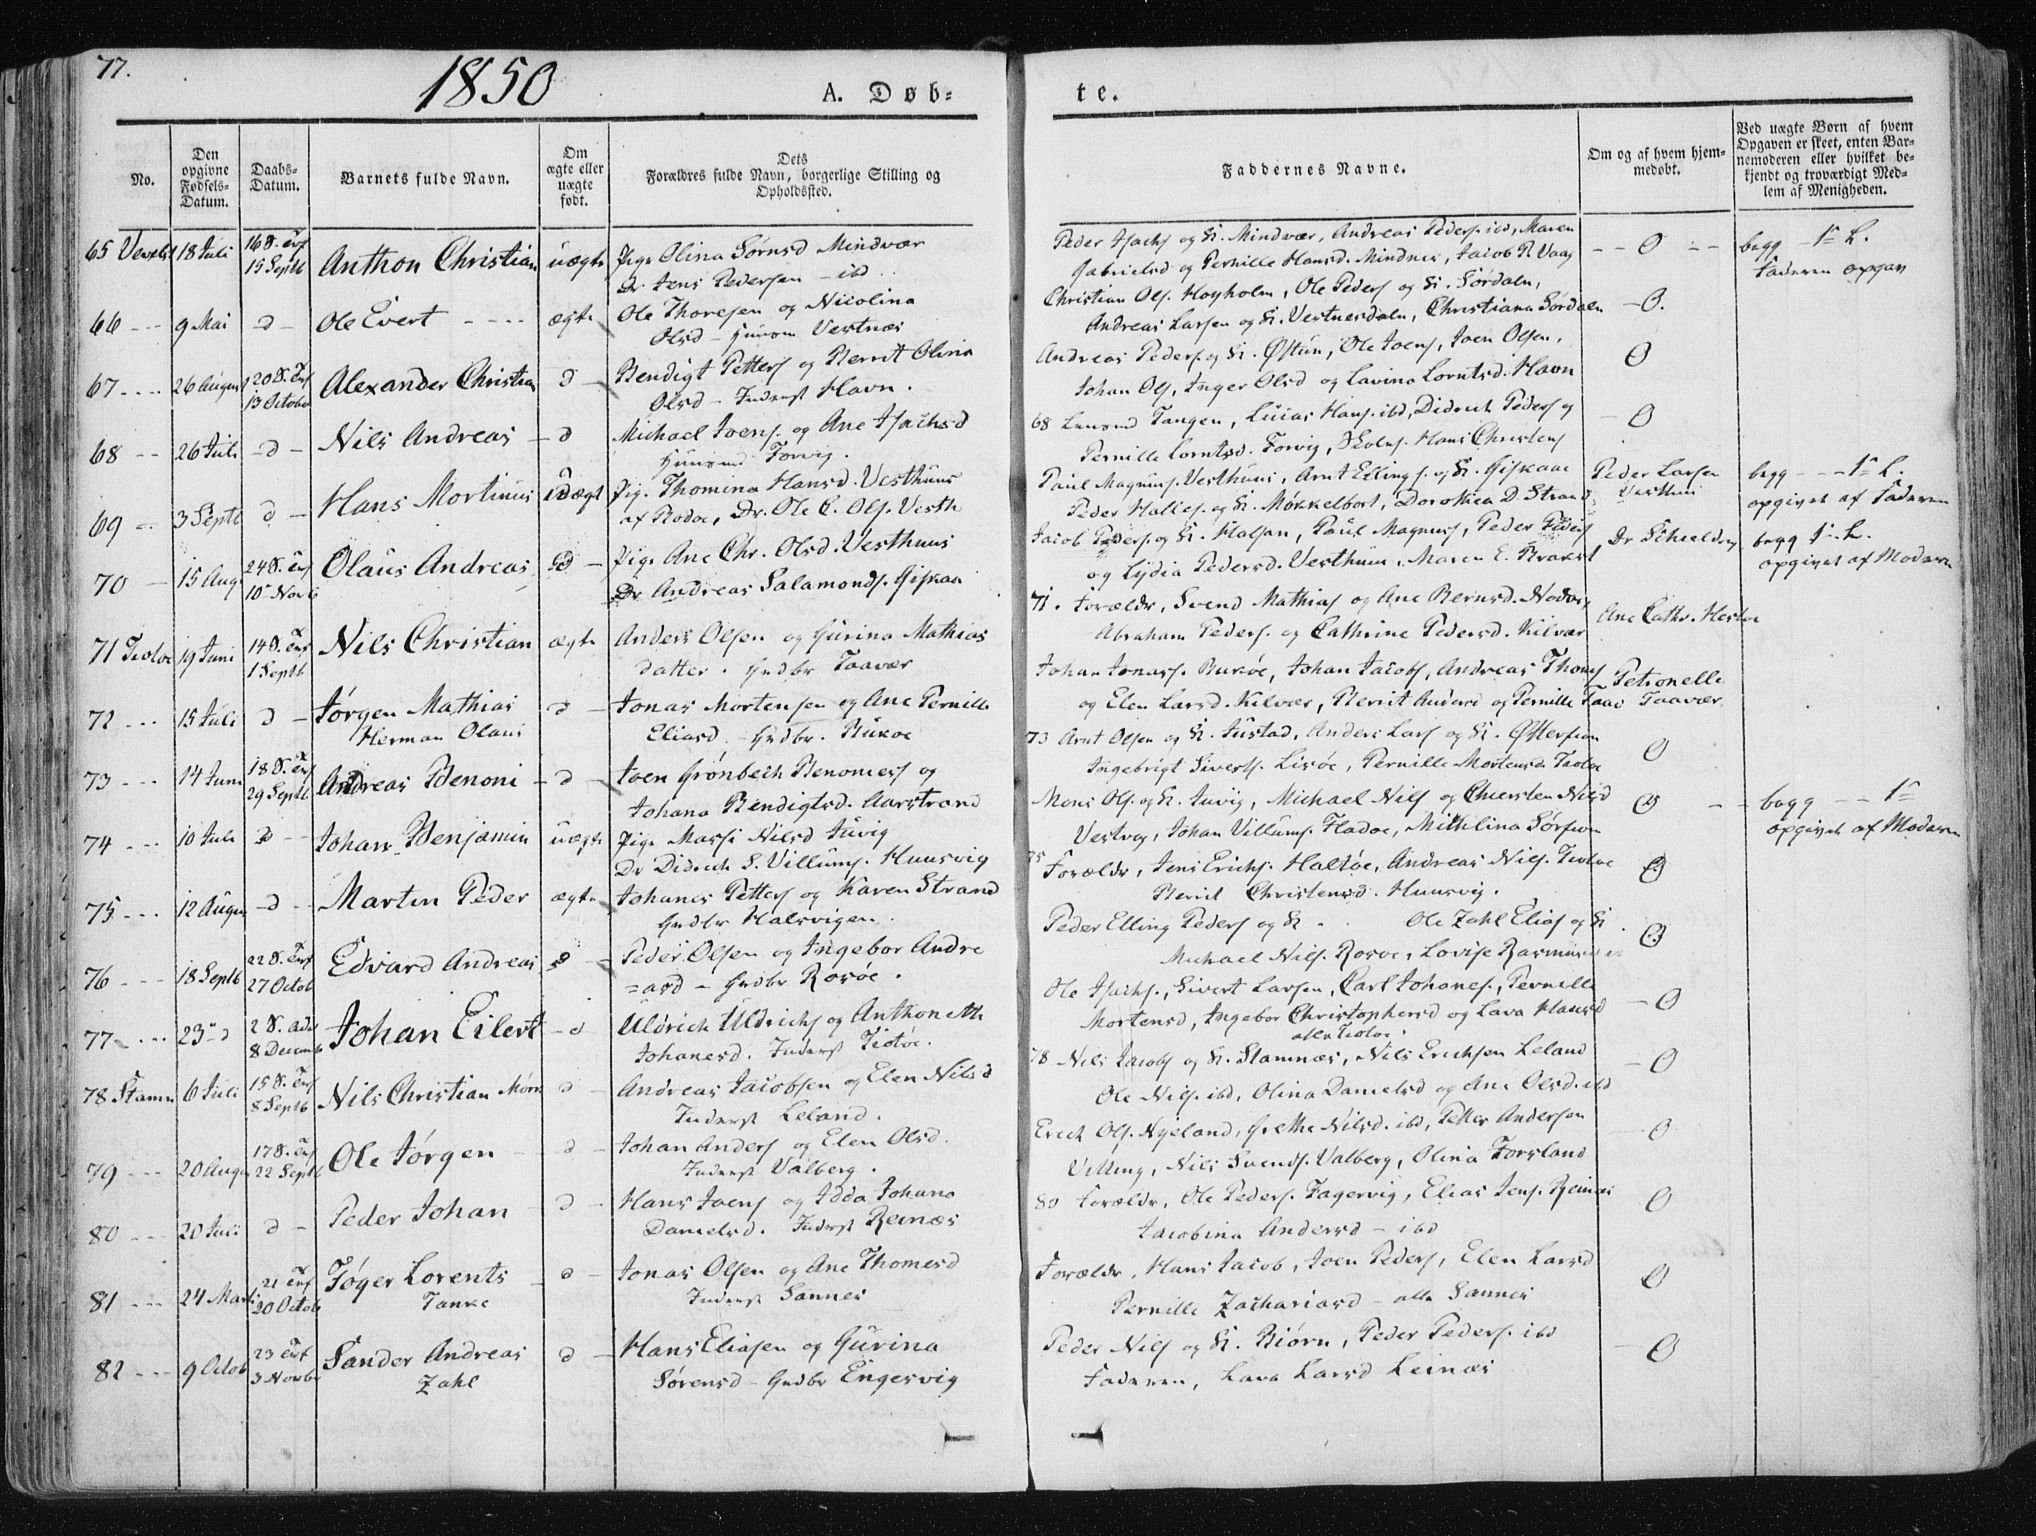 77.
1850
A. Døb-
te.
No.
Den opgivne Fødsels-Datum.
Daabs-Datum.
Barnets fulde Navn.
Om ægte eller uægte født.
Dets Forældres fulde Navn, borgerlige Stilling og Opholdssted.
Faddernes Navne.
Om og af hvem hjemmedøbt.
Ved uægte Børn af hvem Opgaven er skeet, enten Barnemoderen eller hvilket bekjendt og troværdigt Medlem af Menigheden.
65 18 Juli 15 Septb Anthon Christian uægte Pige Olina Sørnsd Mindvær
Jens Pedersen - ibd
Andreas Peders. ibd, Maren
Gabrielsd og Pernille Hansd. Mindnes, Jacob
O begg - 1ste L.
Faderen opgav
66 9 Mai d Ole Evert ægte Ole Thoresen og Nicolina
Olsd - Vestnæs
Christian Ols. Høyholm, Ole Peders og K. Sørdaln,
Andreas Larsen og K. Vestnesdaln, Christiana Sørdaln
O.
67 26 August 13 October Alexander Christian d Bendigt Petters og Berrit Olina
Olsd - Inderst Havn.
Andreas Peders og K. Østun, Ole Joens, Joen Olsen,
Johan Ols, Inger Olsd og Lavina Lorntsd. Havn
O
68 26 Juli d Nils Andreas d Michael Joens. og Ane Isachsd
Forvig.
68 Tangen, Lucas Hans. ibd, Didrich Peders og
Pernille Lorntsd. Forvig, Hans Christens
O
69 3 Septb d Hans Mortinus Uægt Pig. Thomina Hansd. Vesthuus
af Rodøe, Ole C. Ols. Vesth
Paul Magnus. Vesthuus, Arnt Ellings. og K. Giskaae
Peder Halles. og K. Møkkelbost, Dorothea D. Strand
Peder Larsen
Vesthuus
begg - 1ste L.
opgivet af Faderen
70 15 Aug 10 Novb Olaus Andreas d Pige Ane Chr. Olsd. Vesthuus
Andreas Salamonds. Giskaa
Jacob Peders. og K. Halsan, Paul Magnus, Peder Peders
og Lydia Pedersd. Vesthuus, Maren E.
begg 1ste L.
opgivet af Moderen
71 Tiotøe 19 Juni 1 Septb Nils Christian ægte Anders Olsen og Gurina Mathias
datter. Gaardbr Taavær
71. Forældr, Svend Mathias og Ane Bernsd.
Abraham Peders. og Cathrine Pedersd. Kilvær
Ane Cathr.
72 15 Juli d Jørgen Mathias
Herman Olaus
d Jonas Mortensen og Ane Pernille
Eliasd. - Gdbr. Bukøe
Johan Jonass. Bukøe, Johan Jacobs, Andreas Thoms
og Elen Larsd. Kilvær, Berrit Andersd og Pernille
Petronelle
Taavær
73 14 Juni 29 Septb Andreas Benoni d Joen Grønbech Benomers og
Johana Bendigtsd. Aarstrand
73 Arnt Olsen og K. Justad, Anders Lars og K.
Ingebrigt Siverts. Lisøe, Pernille Mortensd. Tiotøe
O
74 10 Juli d Johan Benjamin uægte Pige Massi Nilsd Juvig
Didrich S. Villums. Huusvig
Mons Ols. og K. Juvig, Michael Nils og Chiersten Nilsd
Vestvog, Johan Villums. Fladøe, Mithlina
O begg - 1ste
opgivet af Moderen
75 12 August d Martin Peder ægte Johanes Petters og Karen Strand
Gdbr Halsvigen.
75 Forældr, Jens Erichs. Haltøe, Andreas Nils. Tiotøe
Berrit Christensd. Huusvig.
O
76 18 Septb 27 Octob Edvard Andreas d Peder Olsen og Ingebor Andre
=asd - Gdbr Rosøe.
Peder Elling Peders og K. Ole Zahl Elias og K.
Michael Nils. Rosøe, Lovise Rasmusd
O
77 23 d 8 Decemb Johan Eilert d Uldrich Uldrichs og Anthonette
Johanesd. Inderst Tiotøe.
Ole Isachs., Sivert Larsen, Carl Johanes., Pernille
Mortensd, Ingebor Christophersd og Lava Hansd
alle Tiotøe.
O
78 Stamn 6 Juli 15 S. Trf 8 Septb Nils Christian Mørk d Andreas Jacobsen og Elen Nilsd
Inderst Leland.
78 Nils Jacobs og K. Stamnæs, Nils Erichsen Leland
Ole Nils. ibd, Olina Danielsd og Ane Olsd. ibd
O
79 20 August 17 S. Trf 22 Septb Ole Jørgen d Johan Anders og Elen Olsd.
Inderst Valberg.
Erich Ols. Nyeland, Grethe Nilsd. ibd, Petter Andersen
Velling, Nils Svends. Valberg, Olina Forsland
O
80 20 Juli d Peder Johan d Hans Joens og Idda Johana
Danielsd. Inderst Reinæs
80 Forældr, Ole Peders. Fagervig, Elias Jens. Reinæs
Jacobina Andersd - ibd
O
81 24 Marts 21 Trf 20 Octob Tøger Lorents
Tanke
d Jonas Olsen og Ane Thomesd
Inderst Sannes
Forældr, Hans Jacob, Joen Peders, Elen Larsd
Pernille Zachariasd - alle Sannes
O
82 9 Octob 23 Trf 3 Novbr Sander Andreas
Zahl
d Hans Eliasen og Gurina
Sørensd - Gdbr Engesvig
Peder Nils og K. Biørn, Peder Peders. ibd
Faderen, Lava Larsd Leinæs
O